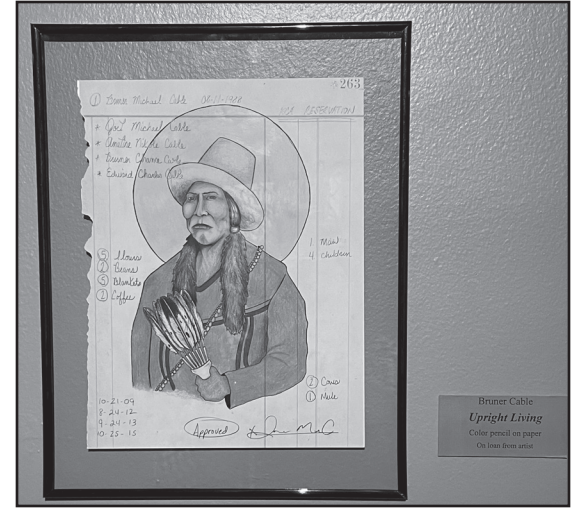 263
① Bruner Michael Cable
RESERVATION
* Joey Michael Cable
* Cable
* Bruner Cable
* Edward Charles Cable
1 Man
4 Children
⑤ Flours
② Beans
⑤ Blankets
② Coffee
② Cows
① Mule
10-21-09
8-24-12
9-24-13
10-25-15
Approved
Bruner Cable
Upright Living
Color pencil on paper
On loan from artist